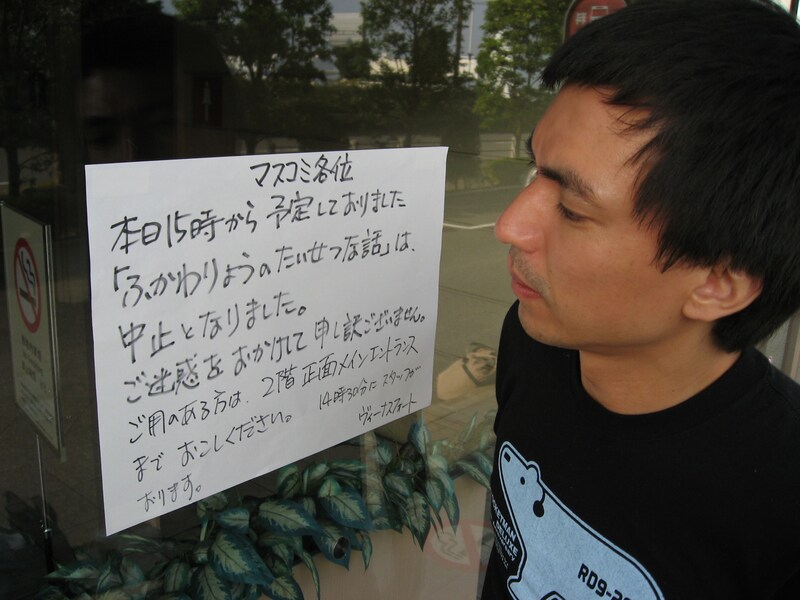 マスコミ各位
本日15時から予定しておりました
「ふかわりょうのたいせつな話」は、
中止となりました。
ご迷惑をおかけして申し訳ございません。
ご用のある方は、2階正面メインエントランス
までおこしください。14時30分にスタッフが
おります。
ヴィーナスフォート
RD9-20